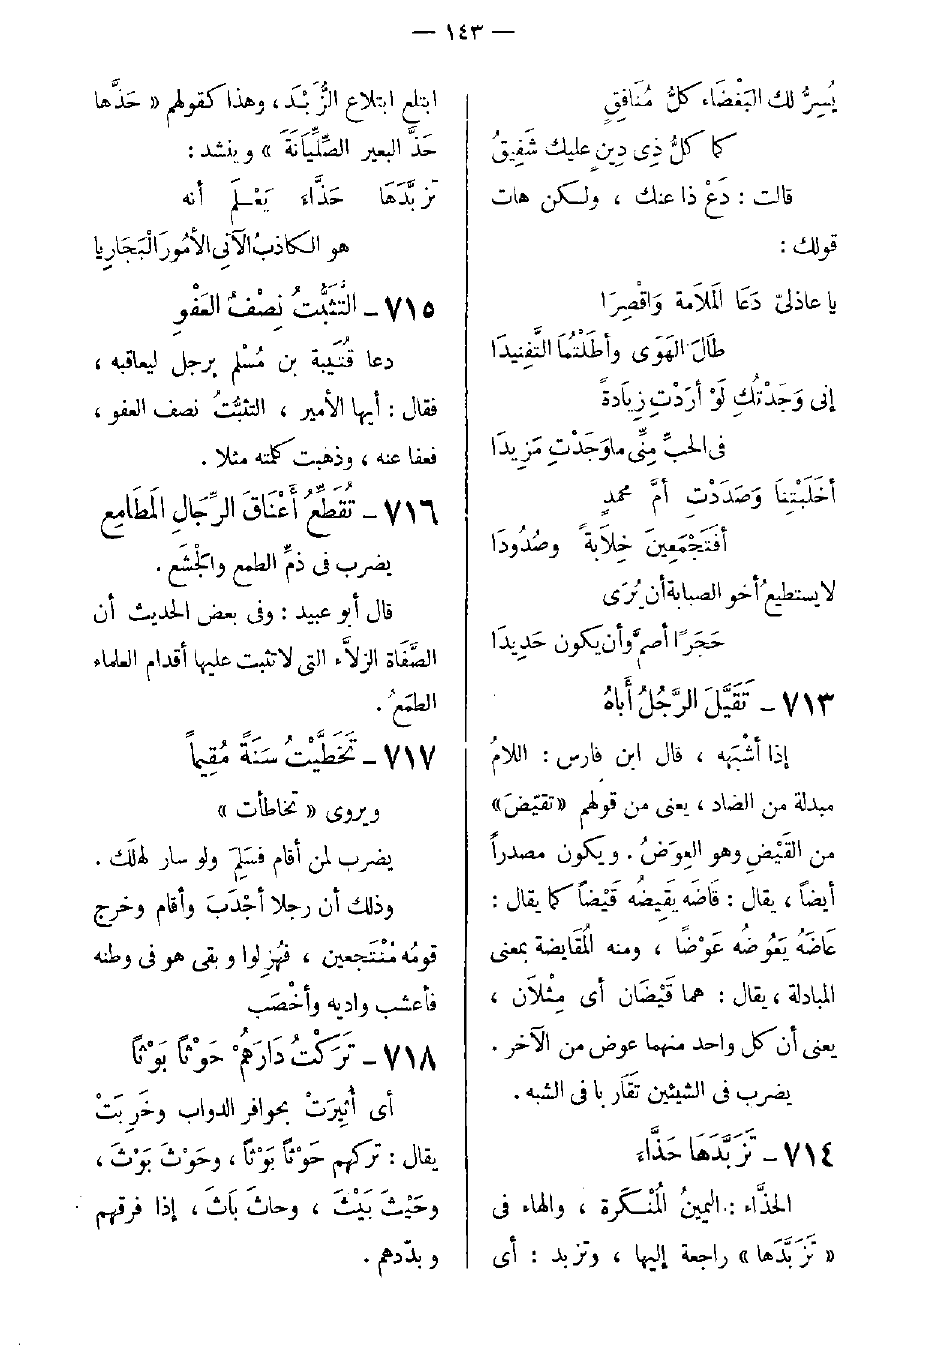 — ١٤٣ —
يُسِرُّ لك البَغْضَاء كلُّ مُنَافِقٍ
كما كلُّ ذِى دِينٍ عليك شَفِيقُ
قالت : دَعْ ذا عنك ، ولكن هات
قولك :
يا عاذلىَّ دَعَا المَلَامة وَاقْصِرَا
طَالَ الهَوَى وأطَلْتُمَا التَّفْنِيدَا
إنى وَجَدْتُكِ لَوْ أرَدْتِ زِيَادةً
فى الحبِّ مِنِّى ماوَجَدْتِ مَزِيدَا
أخَلَبْتِنَا وَصَدَدْتِ أمَّ محمدٍ
أفَتَجْمَعِينَ خِلَابةً وصُدُودَا
لايستطيعُ أخو الصبابة أن يُرَى
حَجَرًا أصمَّ وأن يكون حَدِيدَا
٧١٣ – تَقَيَّلَ الرَّجُلُ أَبَاهُ
إذا أشْبَهه ، قال ابن فارس : اللامُ
مبدلة من الضاد ، يعنى من قولهم «تقيّضَ»
من القَيْضِ وهو العِوَضُ . ويكون مصدراً
أيضاً ، يقال : قَاضَه يَقِيضُه قَيْضاً كما يقال :
عَاضَهُ يَعُوضُه عَوْضًا ، ومنه المُقَايضة بمعنى
المبادلة ، يقال : هما قَيْضَان أى مِثْلَان ،
يعنى أن كل واحد منهما عوض من الآخر .
يضرب فى الشيئين تَقَاربا فى الشبه .
٧١٤ – تَزَبَّدَهَا حَذَّاءَ
الحذَّاء : اليمينُ المُنْكَرة ، والهاء فى
« تَزَبَّدَها » راجعة إليها ، وتزبد : أى
ابتلع ابتلاع الزُّبْد ، وهذا كقولهم « حَذَّها
حَذَّ البعير الصِّلِّيَانَةَ » وينشد :
تزبَّدَهَا حَذَّاءَ يَعْلَم أنه
هو الكاذبُ الآتى الأمُورَ الْبَجَارِيا
٧١٥ – التَّثَبُّتُ نِصْفُ العَفْوِ
دعا قُتَيبة بن مُسْلم برجل ليعاقبه ،
فقال : أيها الأمير ، التثبُّتُ نصف العفو ،
فعفا عنه ، وذهبت كلمته مثلا .
٧١٦ – تُقَطِّعُ أَعْنَاقَ الرِّجَالِ المَطَامِعِ
يضرب فى ذمِّ الطمع والجْشَع .
قال أبو عبيد : وفى بعض الحديث أن
الصَّفَاة الزلاَّء التى لاتثبت عليها أقدام العلماء
الطمَعُ .
٧١٧ – تَخَطَّيْتُ سَنَةً مُقِيماً
ويروى « تخاطأت »
يضرب لمن أقام فسَلِمَ ولو سار لهَلَك .
وذلك أن رجلا أجْدَبَ وأقام وخرج
قومُه مُنْتَجعين ، فهُزِلوا وبقى هو فى وطنه
فأعشب واديه وأخْصَب
٧١٨ – تَرَكْتُ دَارَهُمْ حَوْثاً بَوْثاً
أى أثِيرَتْ بحوافر الدواب وخَرِبَتْ
يقال : تركهم حَوْثاً بَوْثاً ، وحَوْثَ بَوْثَ ،
وحَيْثَ بَيْثَ ، وحاثَ بَاثَ ، إذا فرقهم
وبدّدهم .